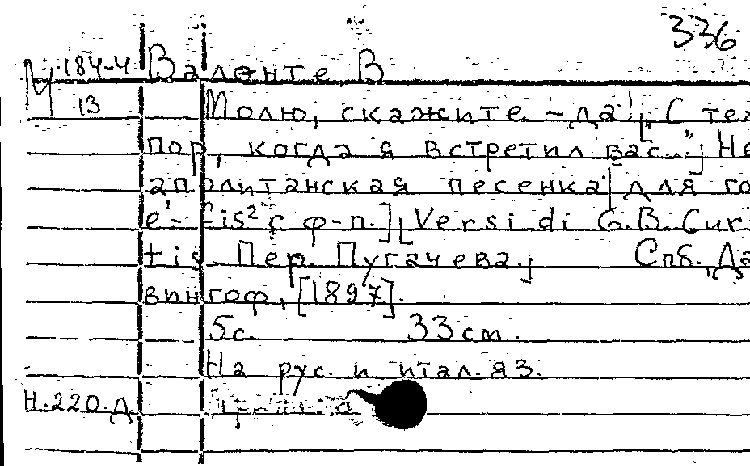 336
М 184-4 Валенте В
13 Молю, скажите - да!, ["С тех
пор, когда я встретил вас..."] Не
аполитанская песенка [для го
e¹- fis² с ф-п.], Versi di G.B. Cur
tis Пер. Пугачева., Спб., Да
вингоф, [1897].
5с. 33см.
На рус. и итал. яз.
Н.220.д.